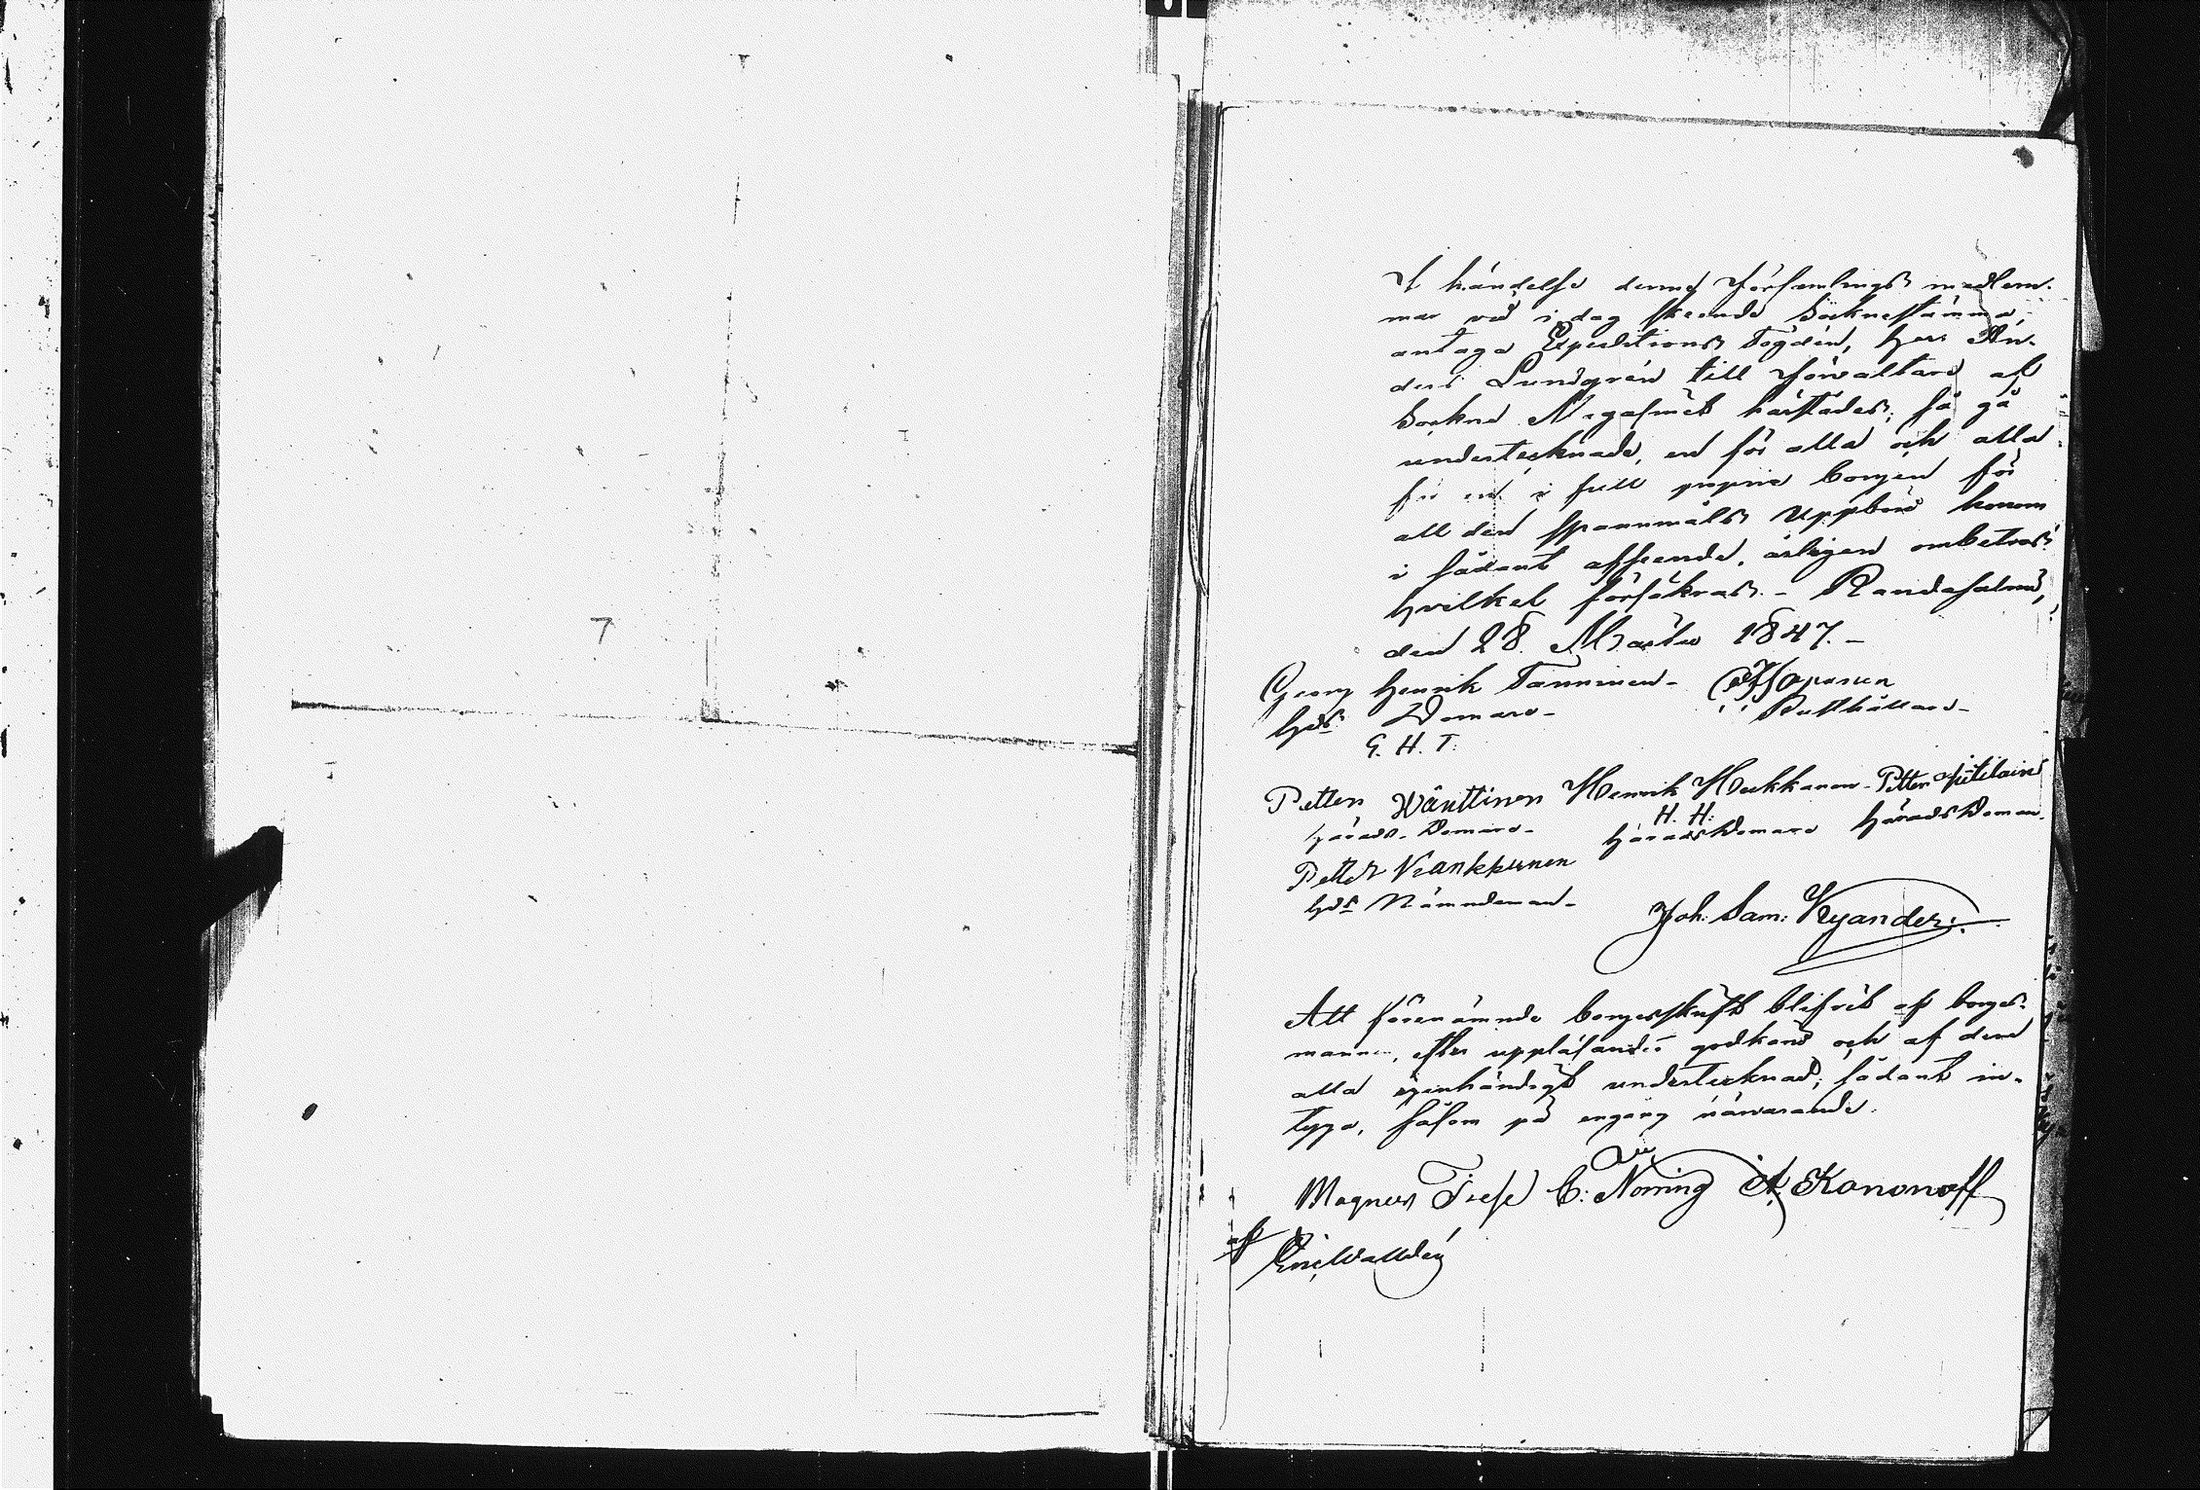 I händelse denne Församlings medlem-
mar vid i dag skeende Socknestämma,
antaga Expeditions Fogden, Herr An-
ders Lundgrén till Förvaltare af
Sockne Magasinet härstädes; så gå
undertecknade, en för alla och alla
för en i full proprie borgen för
all den Spannmåls Uppbörd honom
i sådant afseende, årligen ombetros:
hvilket försäkras. - Randasalmi,
den 28. Martii 1847. -
Georg Henrik Tanninen - Haponen
Hds Domare - Rusthållare -
G. H. T.
Petter Wänttinen Henrik Heikkanen - Petter
H. H.
Härads Domare - Härads Domare Härads Doman.
Petter
Hds Nämndeman -
Joh: Sam: Kyander.
Att förenämnde borgesskrift blifvit af borges-
männen, efter uppläsandet godkänd och af dem
alla egenhändigt undertecknad; sådant in-
tyga, såsom på engång närvarande.
Magnus C: Noring A. Kononoff